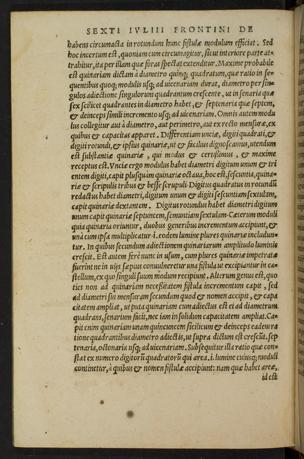 SEXTI IVLII FRONTINI DE
habens circumacta in rotundum hunc fistulæ modulum efficiat. Sed
hoc incertum est, quoniam cum circumagitur, sicut interiore parte at-
trahitur, ita per illam quæ foras spectat extenditur. Maxime probabile
est quinariam dictam à diametro quinq; quadrantum, quæ ratio in se-
quentibus quoq; modulis usq; ad uicenariam durat, diametro per sin-
gulos adiectione singulorum quadrantum crescente, ut in senaria quæ
sex scilicet quadrantes in diametro habet, & septenaria quæ septem,
& deinceps simili incremento usq; ad uicenariam. Omnis autem modu
lus collegitur aut à diametro, aut perimetro, aut è recto mensuræ, ex
quibus & capacitas apparet. Differentiam unciæ, digiti quadrati, &
digiti rotundi, & ipsius quinariæ, ut & facilius dignoscamus, utendum
est substantiæ quinariæ, qui modus & certissimus, & maxime
receptus est. Vncie ergo modulus habet diametri digitum unum & tri
entem digiti, capit plus quàm quinariæ octaua, hoc est, sescuntia, quina-
riæ & scripulis tribus & besse scripuli. Digitus quadratus in rotundū
redactus habet diametri, digitum unum & digiti sescuntiam sextulam,
capit quinariæ dextantem. Digitus rotundus habet diametri digitum
unum capit quinariæ septuncem, semuntiam sextulam. Cæterum moduli
quia quinaria oriuntur, duobus generibus incrementum accipiunt, &
unà cum ipsa multiplicatur .i. eodem lumine plures quinariæ includun
tur. In quibus secundum adiectionem quinariarum amplitudo luminis
crescit. Est autem ferè nunc in usum, cum plures quinariæ impetratæ
fuerint ne in uijs sæpius conuulneretur una fistula ut excipiantur in ca-
stellum, ex quo singuli suum modum recipiunt. Alterum genus est, quo
ties non ad quinariam necessitatem fistula incrementum capit, sed
ad diametri sui mensuram secundum quod & nomen accipit, & capa
citatem ampliat, ut puta quinariam cum adiectus est ei ad diametrum
quadrans, senarium facit, nec iam in solidum capacitatem ampliat. Ca-
pit enim quinariam unam quincuncem sicilicum & deinceps eadem ra
tione quadrantibus diametro adiectis, ut supra dictum est crescūt, sep
tenaria, octonaria usq; ad uicenariam. Subsequitur illa ratio quæ con-
stat ex numero digitorū quadratorū qui area, i. lumine cuiusq; moduli
continetur, à quibus & nomen fistulæ accipiunt: nam quæ habet areæ,
id est